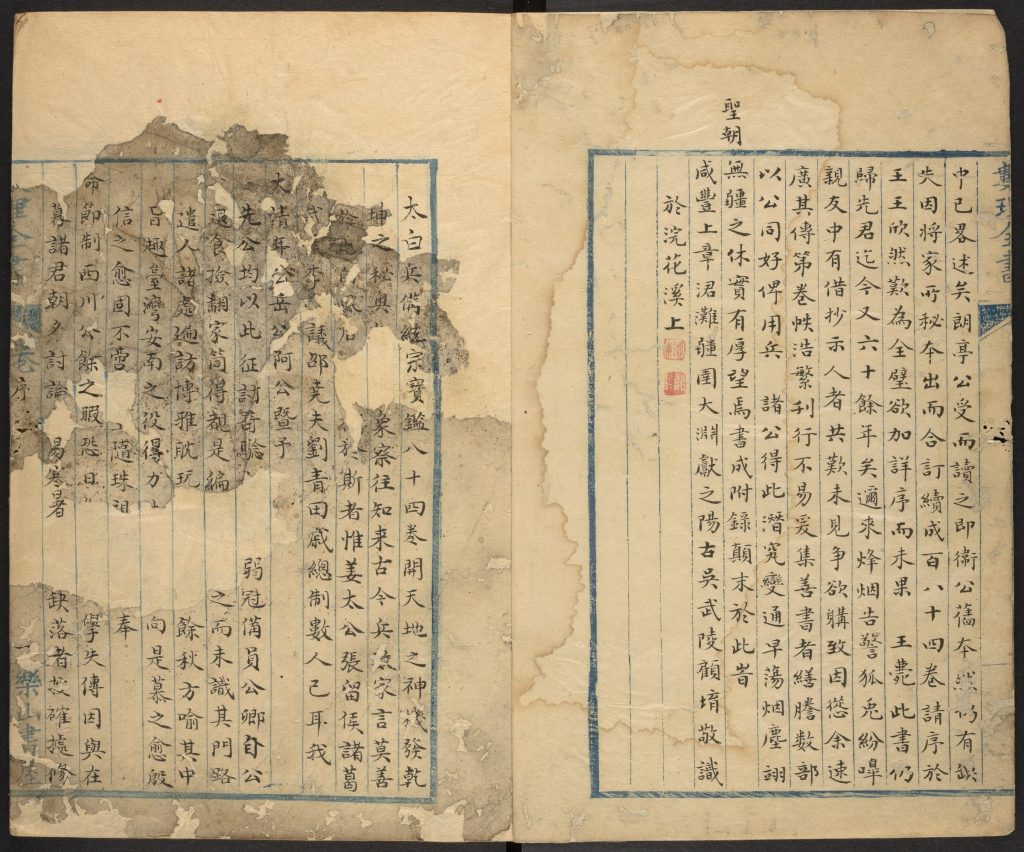 中已畧述矣朗亭公受而讀之即衛公舊本然仍有缺
失因將家所秘本出而合訂續成百八十四卷請序於
王王欣然歎為全璧欲加詳序而未果 王薨此書仍
歸先君迄今又六十餘年矣邇來烽烟告警狐兎紛嘷
親友中有借抄示人者共歎未見爭欲購致因慫余速
廣其傳第卷帙浩繁刊行不易爰集善書者繕謄數部
以公同好俾用兵 諸公得此潛究變通早蕩烟塵翊
聖朝無疆之休實有厚望焉書成附錄顛末於此旹
咸豐上章涒灘疆圉大淵獻之陽古吳武陵顧堉敬識
於浣花溪上
太白兵備統宗寳鑑八十四卷開天地之神機發乾
坤之秘奥 象察往知来古今兵法家言莫善
斯者惟姜太公張留侯諸葛
李 議邵堯夫劉青田戚總制數人已耳我
大清年公岳公阿公暨予
先公均以此征討奇驗 弱冠備員公卿自公
退食撿翻家笥得覩是編 之而未識其門路
遣人諸處遍訪博雅耽玩 餘秋方喻其中
旨趣臺灣安南之役得力 向是慕之愈殷
信之愈固不啻 隨珠 奉
命節制西川公餘之暇恐日 學失傳因與在
幕諸君朝夕討論 易寒暑 缺落者 確據修
卷
序
樂山書屋